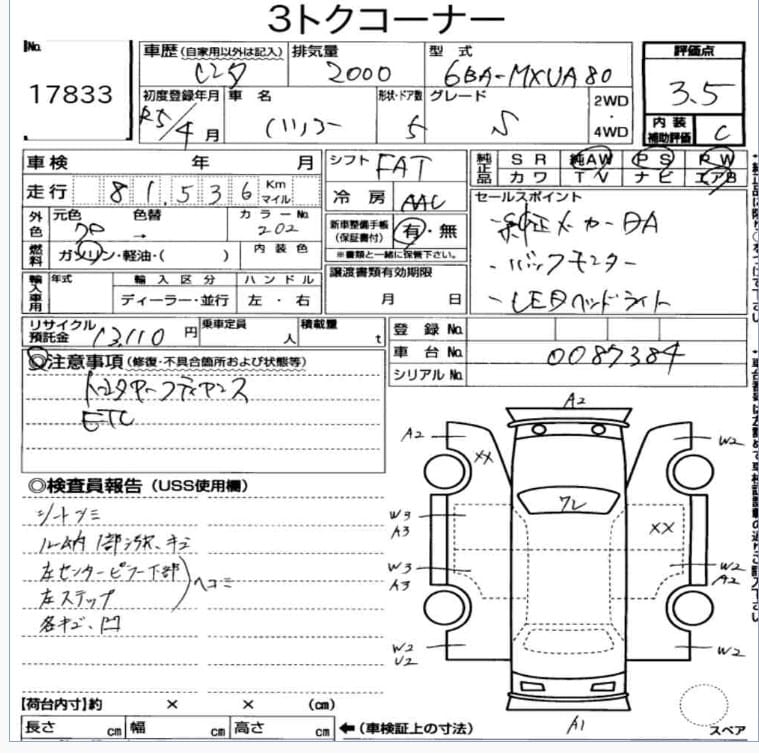 3トクコーナー
No.
17833
車歴 (自家用以外は記入)
レンタ
排気量
2000
型式
6BA-MXUA80
評価点
3.5
初度登録年月
R5/4月
車名
ハリアー
形状・ドア数
5
グレード
S
2WD
・
4WD
内装
補助評価
C
車検 年 月
シフト
FAT
純正品
SR 純AW PS PW
カワ TV ナビ エアB
走行
81,536
Km
マイル
冷房
AAC
セールスポイント
・純正メーカーDA
・バックモニター
・LEDヘッドライト
外色
元色 色替
→
カラーNo.
202
新車整備手帳
(保証書付)
有・無
※書類と一緒に保管下さい。
燃料
ガソリン・軽油・( )
内装色
輸入車用
年式
輸入区分
ハンドル
ディーラー・並行
左・右
譲渡書類有効期限
月 日
リサイクル
預託金
13,110
円
乗車定員
人
積載量
t
登録No.
車台No.
0087384
シリアルNo.
◎注意事項(修復・不具合箇所および状態等)
トヨタセーフティセンス
ETC
◎検査員報告(USS使用欄)
シートシミ
ル納1部汚れ、キズ
左センターピラー下部
左ステップ
ヘコミ
各キズ、凹
A2
A2
XX
W2
フレ
W3
A3
XX
W3
A3
W2
A2
W2
U2
W2
A1
スペア
【荷台内寸】約 × × (cm)
長さ cm 幅 cm 高さ cm
←(車検証上の寸法)